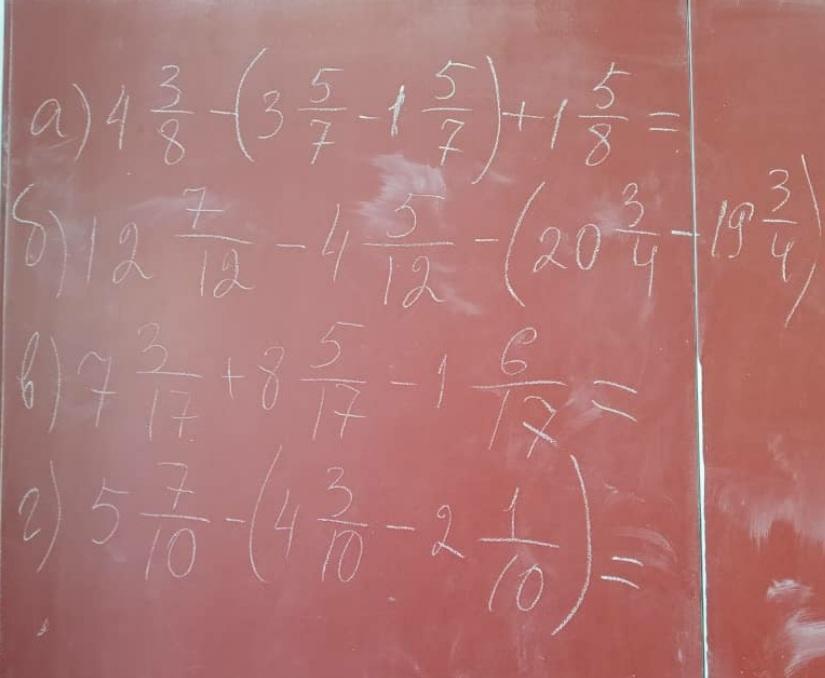 а) 4 3/8 - (3 5/7 - 1 5/7) + 1 5/8 =
б) 12 7/12 - 4 5/12 - (20 3/4 - 19 3/4)
в) 7 3/17 + 8 5/17 - 1 6/17 =
г) 5 7/10 - (4 3/10 - 2 1/10) =